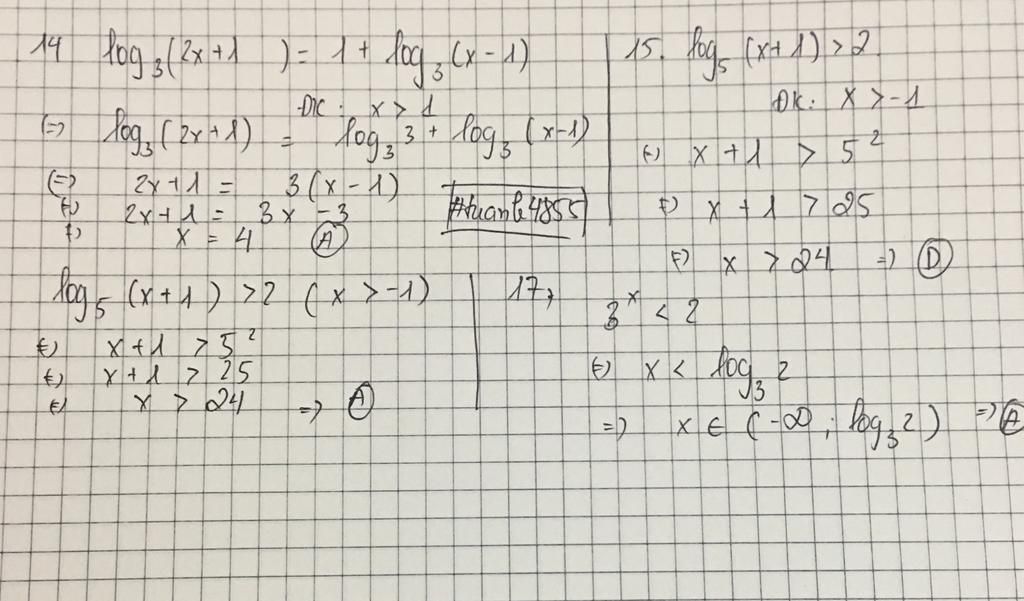 14 log₃(2x+1 ) = 1 + log₃(x-1)
ĐK: x > 1
(=) log₃(2x+1) = log₃3 + log₃(x-1)
(=) 2x+1 = 3(x-1)
(=) 2x+1 = 3x -3
(=) x = 4 Ⓐ
#tuanle4855
15. log₅(x+1) > 2
ĐK: x > -1
(=) x+1 > 5²
(=) x+1 > 25
(=) x > 24 => Ⓓ
log₅(x+1) > 2 (x > -1)
(=) x+1 > 5²
(=) x+1 > 25
(=) x > 24 => Ⓐ
17,
3ˣ < 2
(=) x < log₃2
=> x ∈ (-∞; log₃2) => Ⓐ